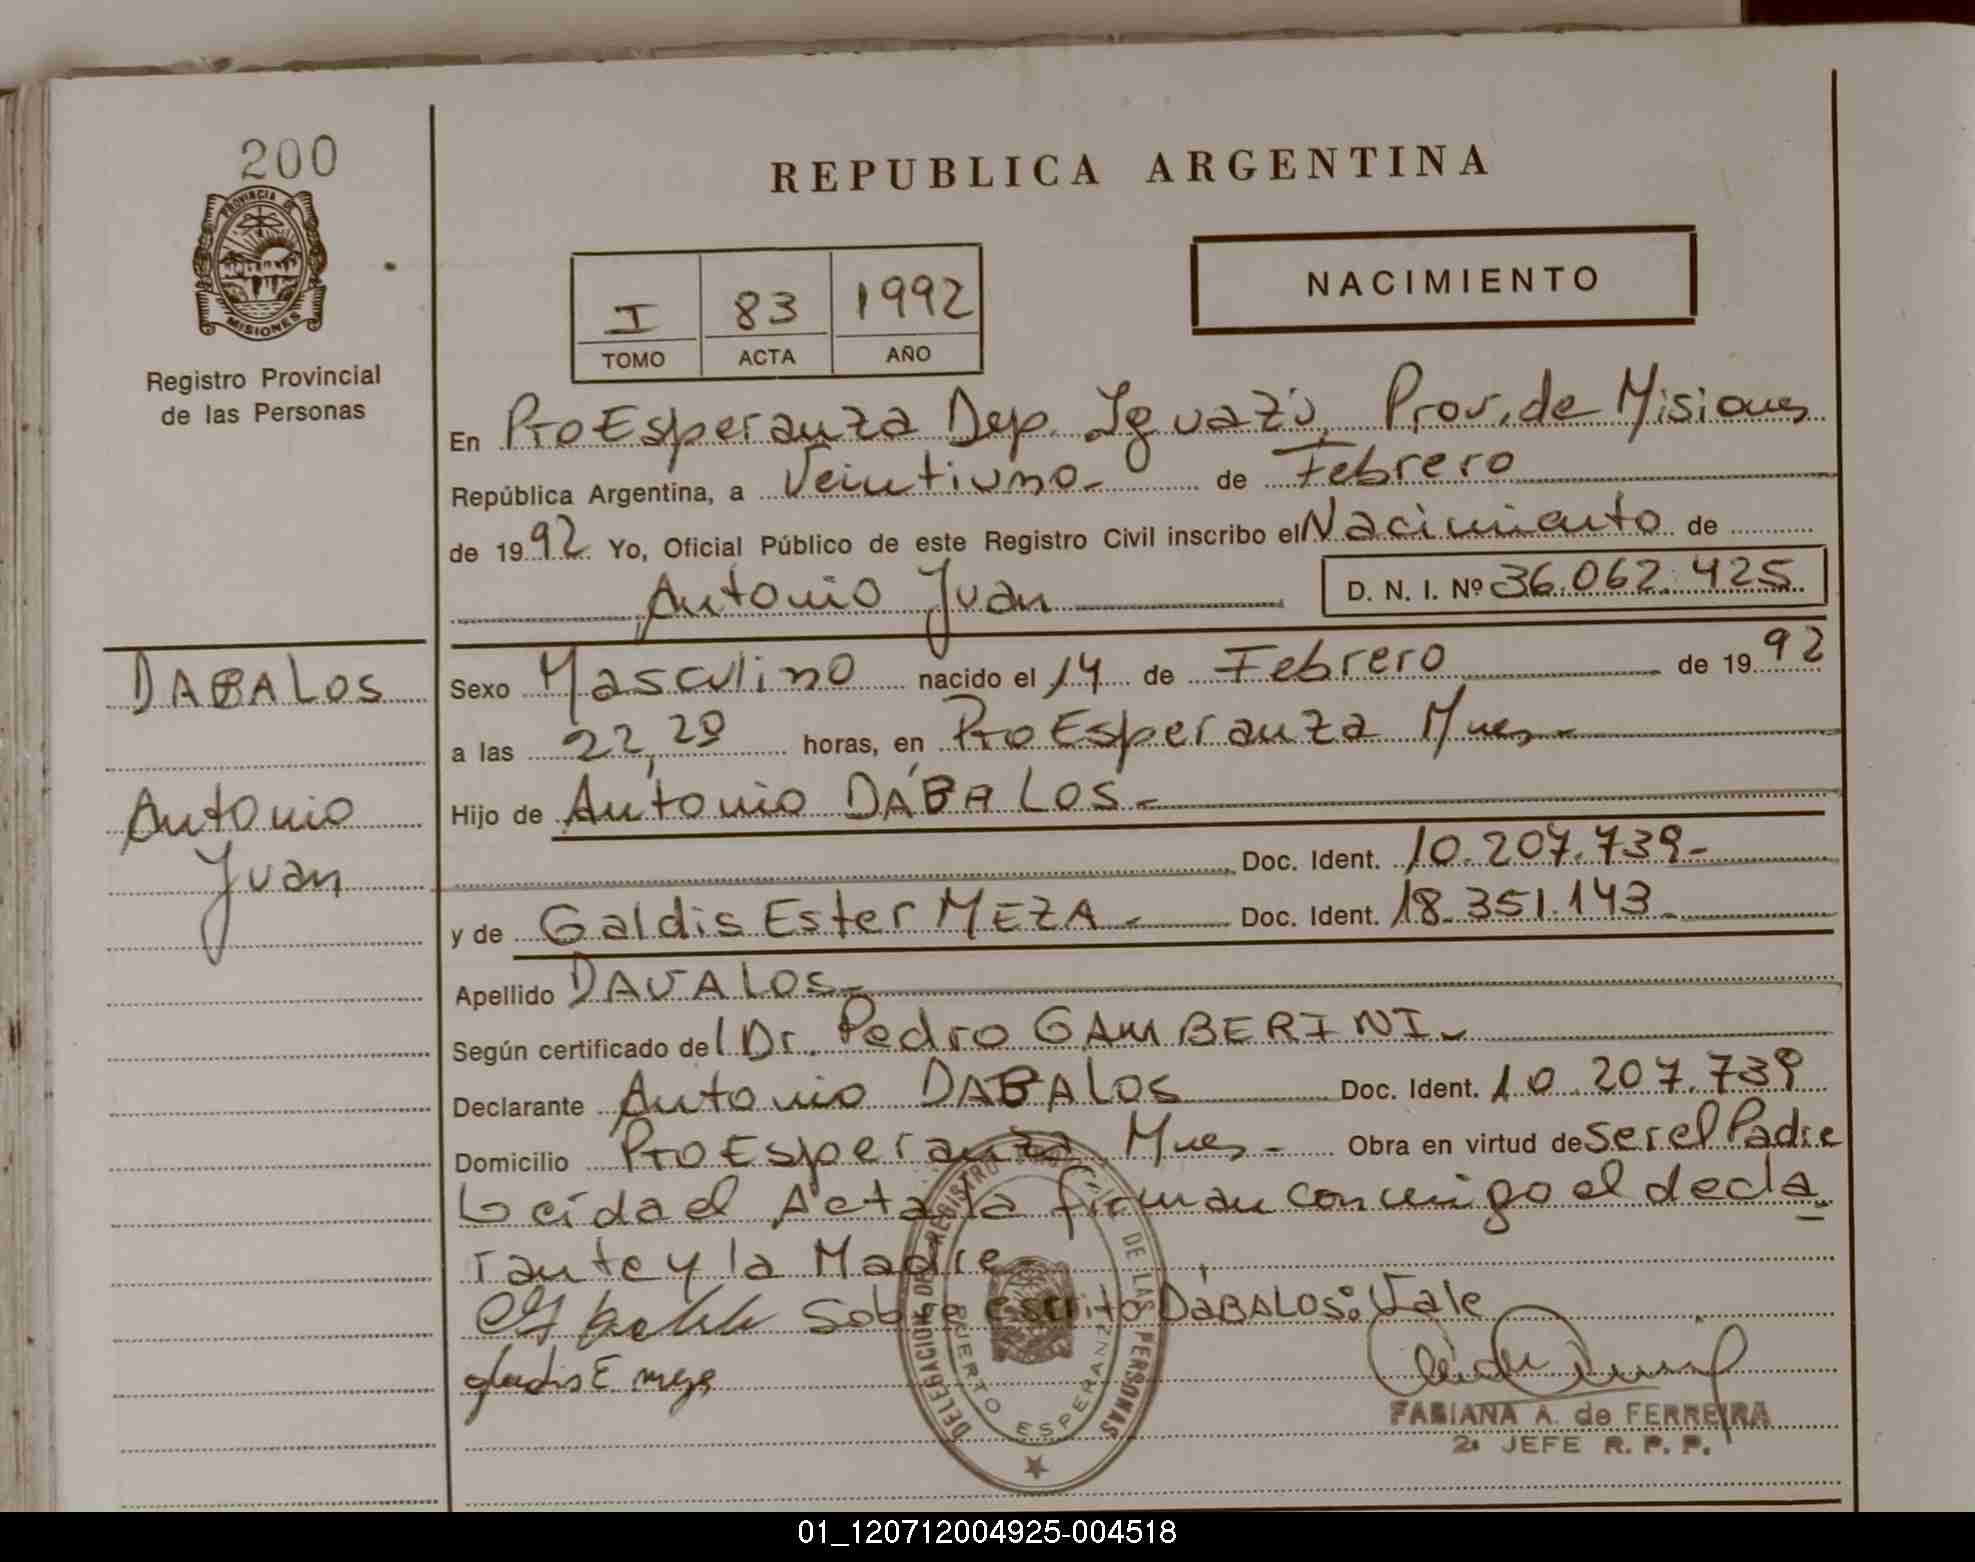 200
PROVINCIA DE
MISIONES
Registro Provincial
de las Personas
REPUBLICA ARGENTINA
I 83 1992
TOMO ACTA AÑO
NACIMIENTO
En Pto Esperanza Dep. Iguazú, Prov. de Misiones
República Argentina, a Veintiuno- de Febrero
de 19 92. Yo, Oficial Público de este Registro Civil inscribo el Nacimiento de
Antonio Juan D. N. I. Nº 36.062.425
DABALOS
Antonio
Juan
Sexo Masculino nacido el 14 de Febrero de 19 92
a las 22,20 horas, en Pto Esperanza Mnes-
Hijo de Antonio DÁBALOS-
Doc. Ident. 10.207.739-
y de Galdis Ester MEZA- Doc. Ident. 18.351.143-
Apellido DAVALOS-
Según certificado del Dr. Pedro GAMBERINI-
Declarante Antonio DABALOS Doc. Ident. 10.207.739
Domicilio Pto Esperanza Mnes- Obra en virtud de ser el Padre
Leída el Acta la firman conmigo el decla
rante y la Madre
Sobre escrito DÁBALOS: Vale
gladis E meza
DELEGACION DEL REGISTRO DE LAS PERSONAS
PUERTO ESPERANZA
FABIANA A. de FERREIRA
2º JEFE R. P. P.
01_120712004925-004518